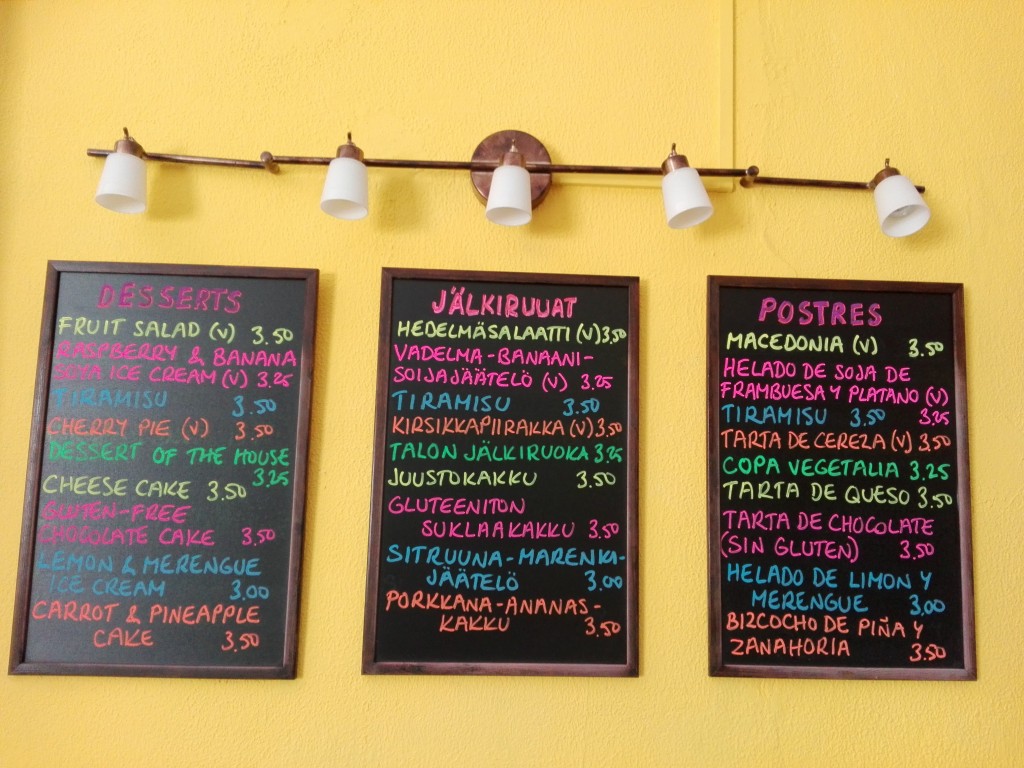 DESSERTS
FRUIT SALAD (V) 3.50
RASPBERRY & BANANA
SOYA ICE CREAM (V) 3.25
TIRAMISU 3.50
CHERRY PIE (V) 3.50
DESSERT OF THE HOUSE
3.25
CHEESE CAKE 3.50
GLUTEN-FREE
CHOCOLATE CAKE 3.50
LEMON & MERENGUE
ICE CREAM 3.00
CARROT & PINEAPPLE
CAKE 3.50
JÄLKIRUUAT
HEDELMÄSALAATTI (V) 3,50
VADELMA-BANAANI-
SOIJAJÄÄTELÖ (V) 3.25
TIRAMISU 3.50
KIRSIKKAPIIRAKKA (V) 3.50
TALON JÄLKIRUOKA 3.25
JUUSTOKAKKU 3.50
GLUTEENITON
SUKLAAKAKKU 3.50
SITRUUNA-MARENKI-
JÄÄTELÖ 3.00
PORKKANA-ANANAS-
KAKKU 3.50
POSTRES
MACEDONIA (V) 3.50
HELADO DE SOJA DE
FRAMBUESA Y PLATANO (V)
3,25
TIRAMISU 3.50
TARTA DE CEREZA (V) 3.50
COPA VEGETALIA 3.25
TARTA DE QUESO 3.50
TARTA DE CHOCOLATE
(SIN GLUTEN) 3.50
HELADO DE LIMON Y
MERENGUE 3,00
BIZCOCHO DE PIÑA Y
ZANAHORIA 3.50